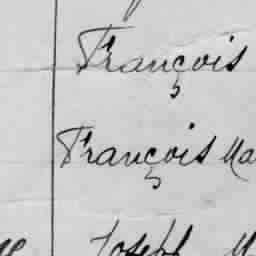 François
François Ma
Joseph M